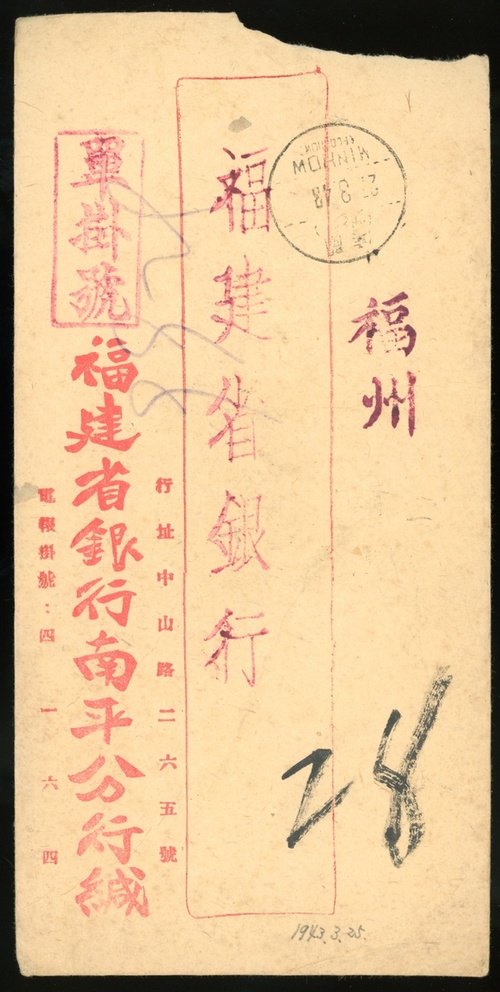 福州
福建省銀行
單掛號
行址中山路二六五號
福建省銀行南平分行緘
電報掛號：四一六四
MINHOW
28
1943.3.25.